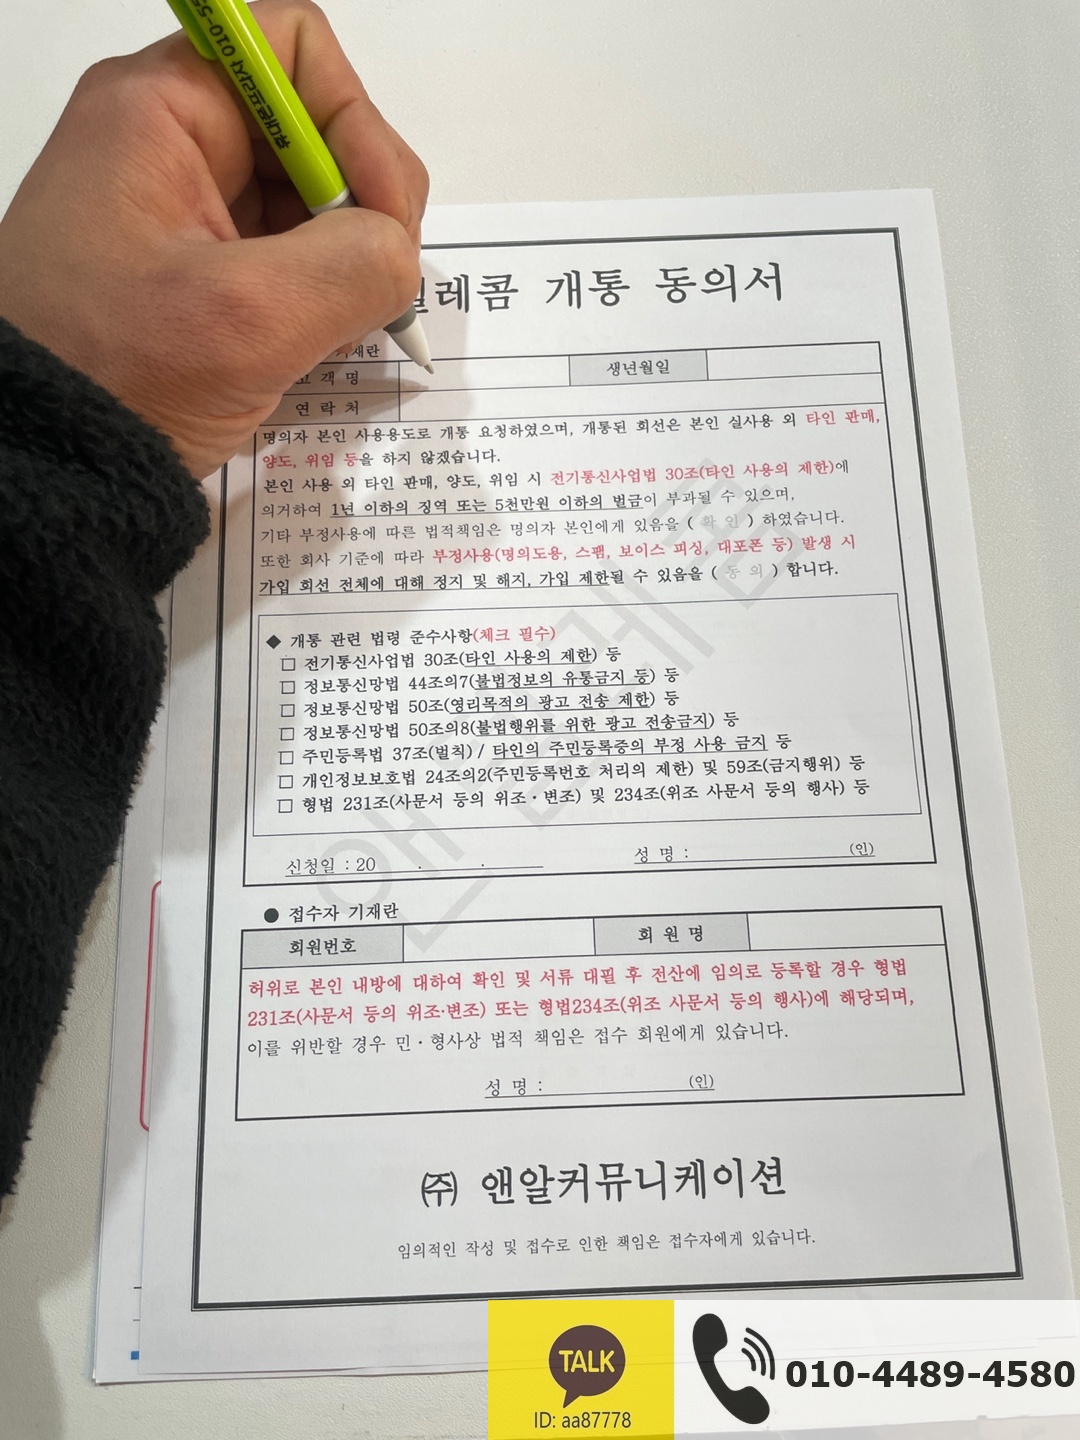 휴대폰프라자 010-55
텔레콤 개통 동의서
기재란
고 객 명
생년월일
연 락 처
명의자 본인 사용용도로 개통 요청하였으며, 개통된 회선은 본인 실사용 외 타인 판매,
양도, 위임 등을 하지 않겠습니다.
본인 사용 외 타인 판매, 양도, 위임 시 전기통신사업법 30조(타인 사용의 제한)에
의거하여 1년 이하의 징역 또는 5천만원 이하의 벌금이 부과될 수 있으며,
기타 부정사용에 따른 법적책임은 명의자 본인에게 있음을 ( 확 인 ) 하였습니다.
또한 회사 기준에 따라 부정사용(명의도용, 스팸, 보이스 피싱, 대포폰 등) 발생 시
가입 회선 전체에 대해 정지 및 해지, 가입 제한될 수 있음을 ( 동 의 ) 합니다.
◆ 개통 관련 법령 준수사항(체크 필수)
□ 전기통신사업법 30조(타인 사용의 제한) 등
□ 정보통신망법 44조의7(불법정보의 유통금지 등) 등
□ 정보통신망법 50조(영리목적의 광고 전송 제한) 등
□ 정보통신망법 50조의8(불법행위를 위한 광고 전송금지) 등
□ 주민등록법 37조(벌칙) / 타인의 주민등록증의 부정 사용 금지 등
□ 개인정보보호법 24조의2(주민등록번호 처리의 제한) 및 59조(금지행위) 등
□ 형법 231조(사문서 등의 위조·변조) 및 234조(위조 사문서 등의 행사) 등
신청일 : 20 . .
성 명 : (인)
● 접수자 기재란
회원번호
회 원 명
허위로 본인 내방에 대하여 확인 및 서류 대필 후 전산에 임의로 등록할 경우 형법
231조(사문서 등의 위조·변조) 또는 형법234조(위조 사문서 등의 행사)에 해당되며,
이를 위반할 경우 민·형사상 법적 책임은 접수 회원에게 있습니다.
성 명 : (인)
㈜ 앤알커뮤니케이션
임의적인 작성 및 접수로 인한 책임은 접수자에게 있습니다.
TALK
ID: aa87778
010-4489-4580